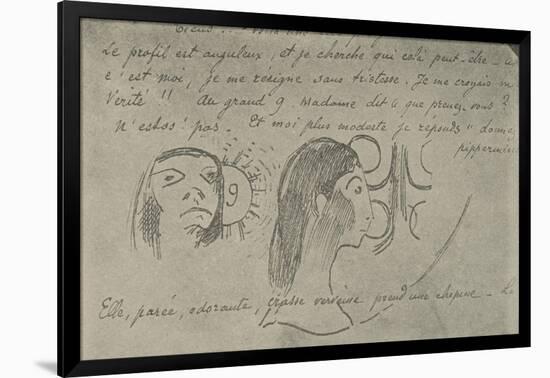 Le profil est anguleux, et je cherche qui celà peut-être -
c'est moi, je me resigne sans tristesse. Je me croyais
Verité !! Au grand 9. Madame dit "que prenez-vous ?
Et moi plus modeste je réponds "donnez
pippermint
9
Elle, parée, odorante, crasse verveine prend une chopine - La